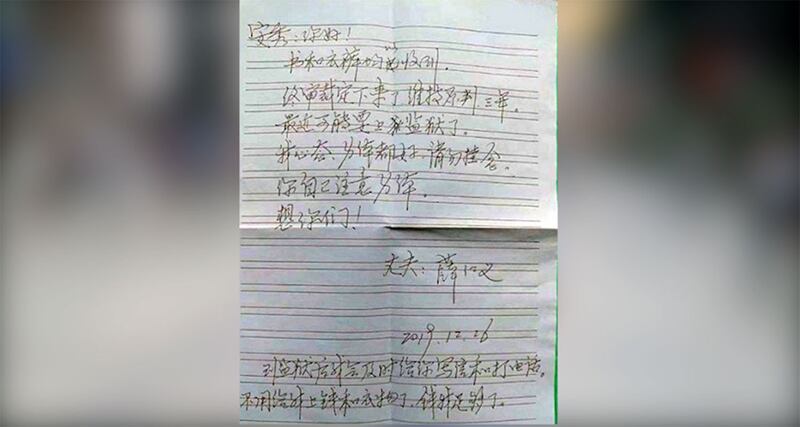 安秀：你好！
书和衣裤均已收到。
终审裁定下来了维持原判三年。
最近可能要上永监狱了。
我心态、身体都好，请勿挂念。
你自己注意身体。
想你们！
丈夫：薛仁义
2019.12.26
到监狱后我会及时给你写信和打电话。
不用给我上钱和衣物了，钱我足够了。